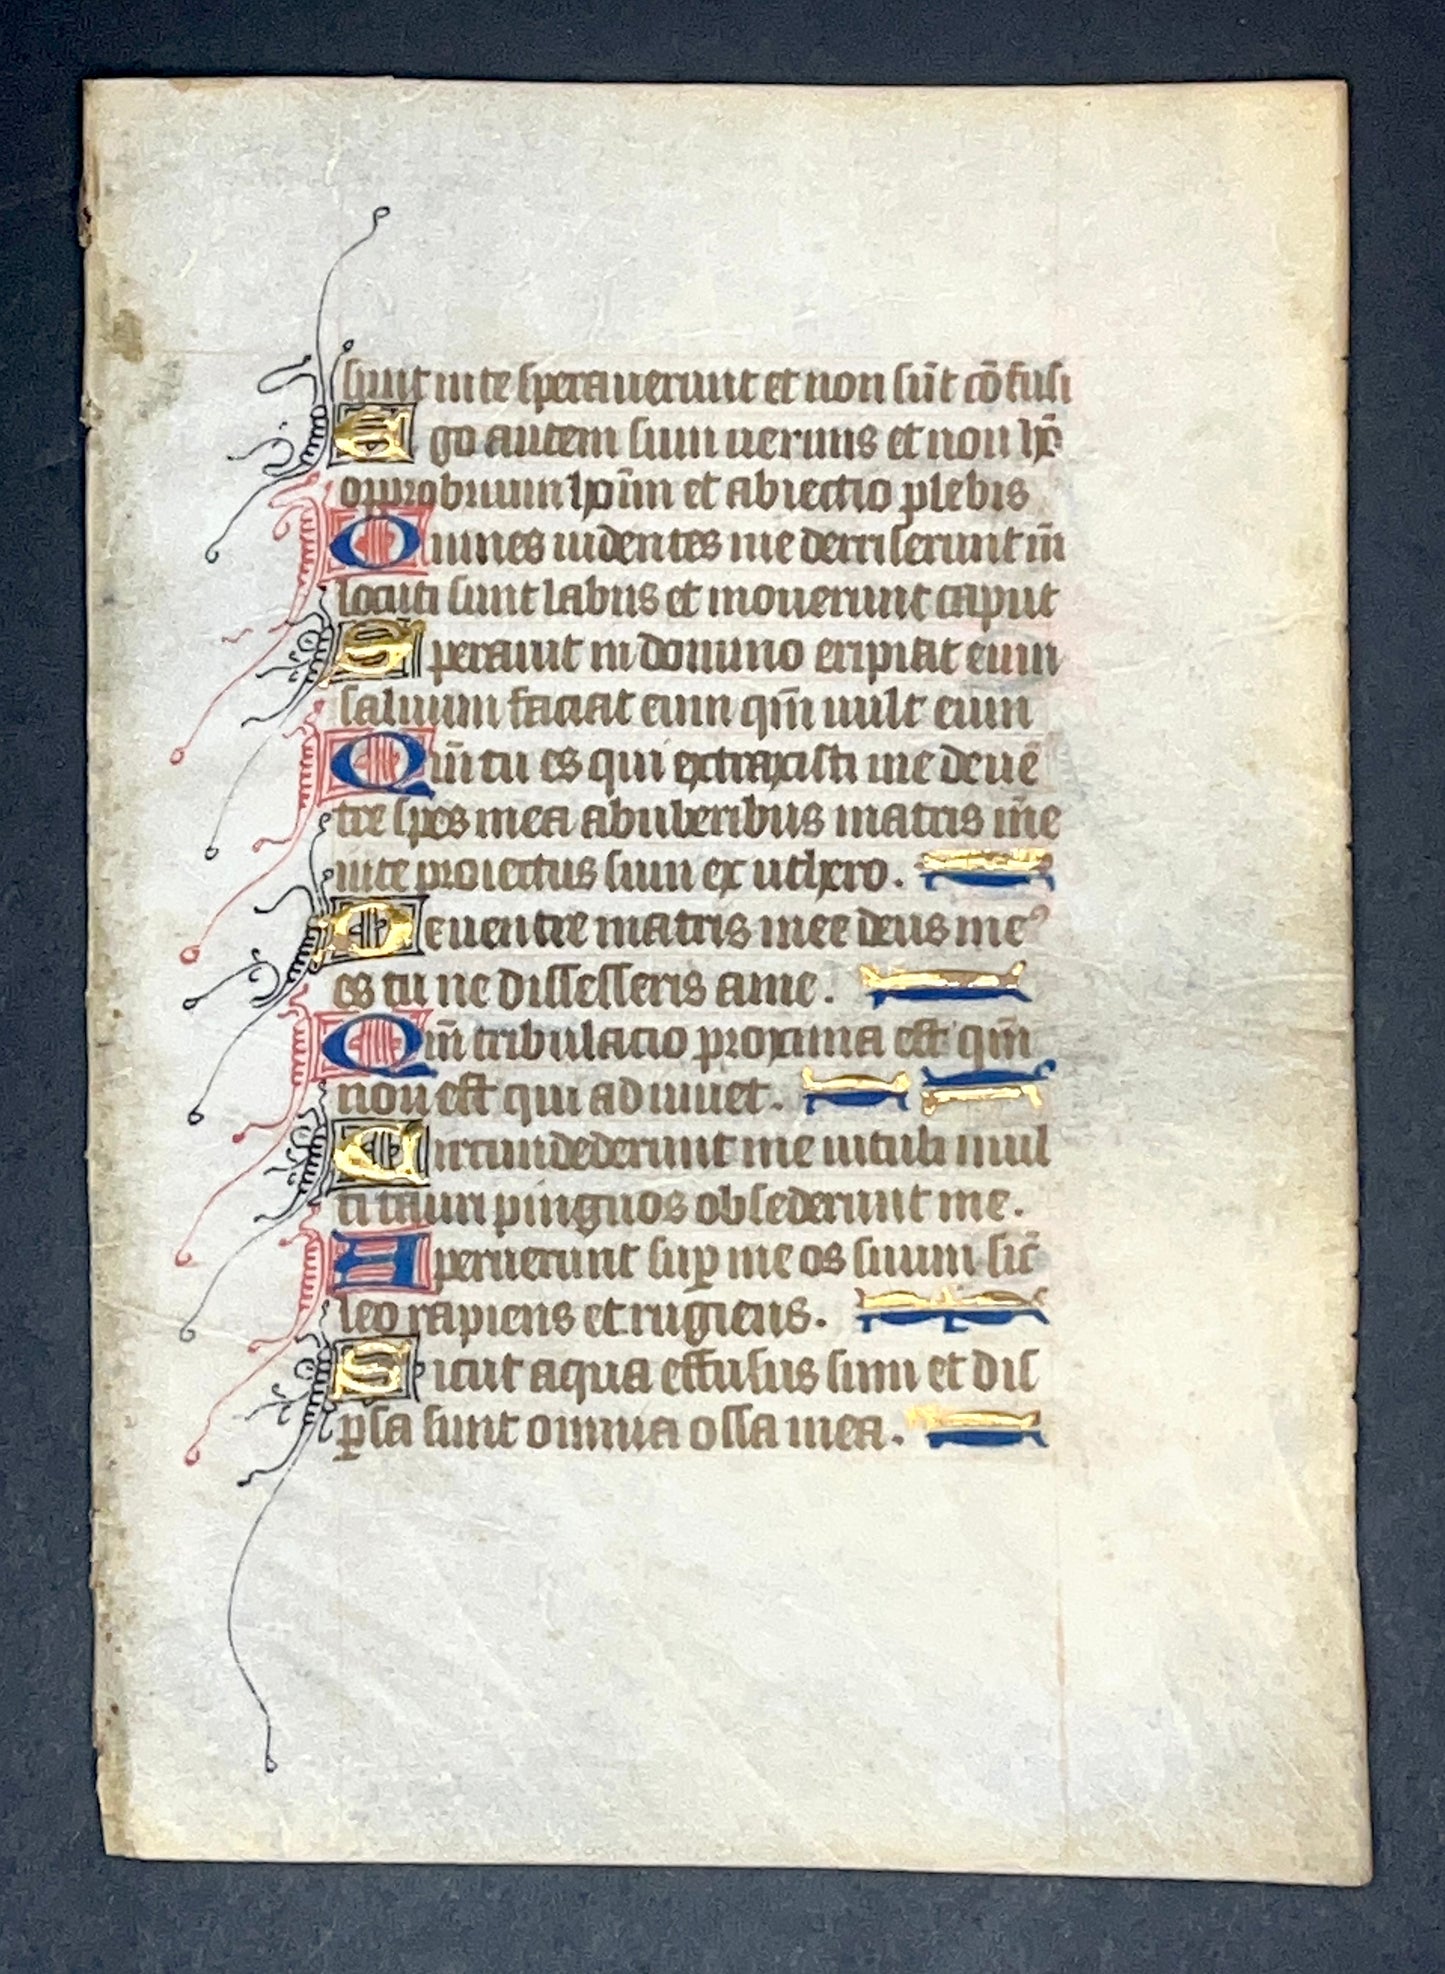 sunt in te sperauerunt et non sūt cōfusi
Ego autem sum uermis et non hō
opprobrium hoīm et abiectio plebis
Omnes uidentes me derriserunt m̄
locuti sunt labiis et mouerunt caput
Sperauit in domino eripiat eum
saluum faciat eum qm̄ uult eum
Qm̄ tu es qui extraxisti me de uē
tre spes mea ab uberibus matris m̄e
in te proiectus sum ex uthero.
De uentre matris mee deus meꝰ
es tu ne dissesseris a me.
Qm̄ tribulacio proxima est qm̄
non est qui adiuuet.
Circumdederunt me uituli mul
ti tauri pinguos obsederunt me.
Aperuerunt suꝑ me os suum sic̄
leo rapiens et rugiens.
Sicut aqua effusus sum et dis
ꝑsa sunt omnia ossa mea.